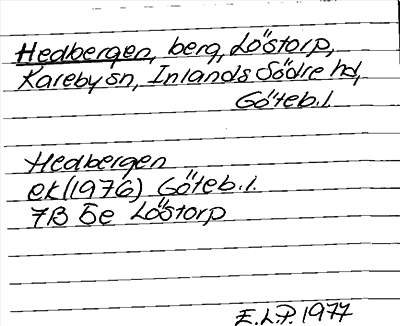 Hedbergen, berg, Löstorp,
Kareby sn, Inlands Södre hd,
Göteb. l.
Hedbergen
ek (1976) Göteb. l.
7B 5e Löstorp
E.L.P. 1977